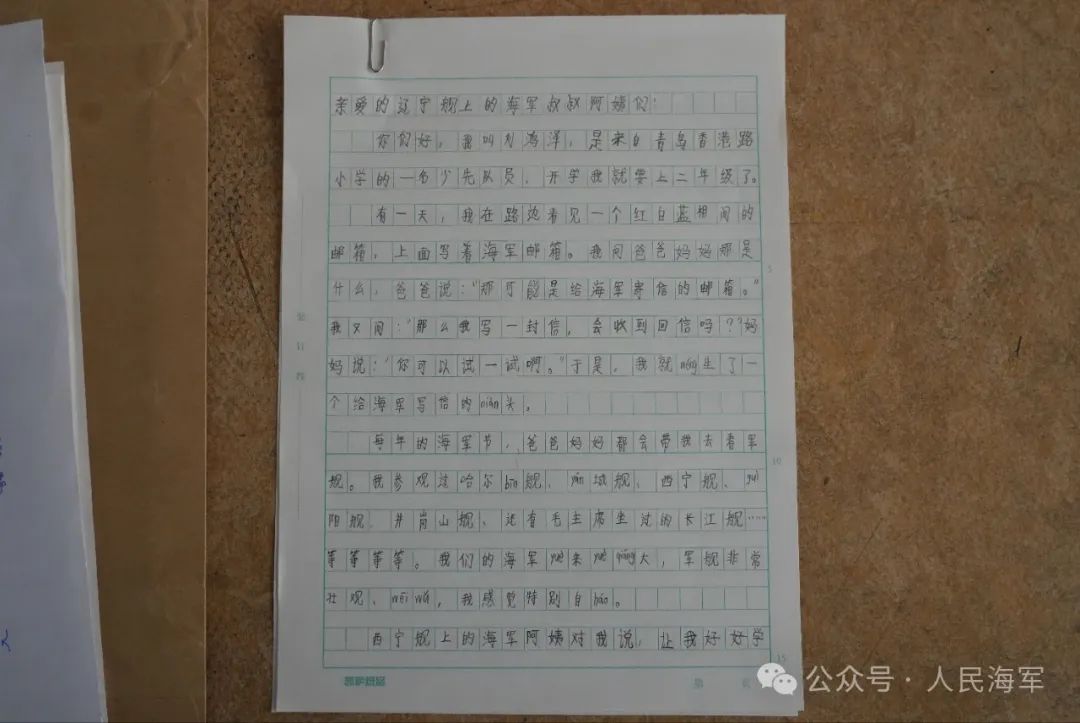 亲爱的辽宁舰上的海军叔叔阿姨们：
你们好，我叫刘鸿洋，是来自青岛香港路
小学的一名少先队员，开学我就要上二年级了。
有一天，我在路边看见一个红白蓝相间的
邮箱，上面写着海军邮箱。我问爸爸妈妈那是
什么，爸爸说：“那可能是给海军寄信的邮箱。”
我又问：“那么我写一封信，会收到回信吗？”妈
妈说：“你可以试一试啊。”于是，我就méng生了一
个给海军写信的niàn头。
每年的海军节，爸爸妈妈都会带我去看军
舰。我参观过哈尔bīn舰、yùn城舰、西宁舰、guì
阳舰、井岗山舰、还有毛主席坐过的长江舰……
等等等等。我们的海军yuè来yuè qiáng大，军舰非常
壮观、wēi wǔ，我感觉特别自háo。
西宁舰上的海军阿姨对我说，让我好好学
装
订
线
5
10
15
第 页
公众号 · 人民海军